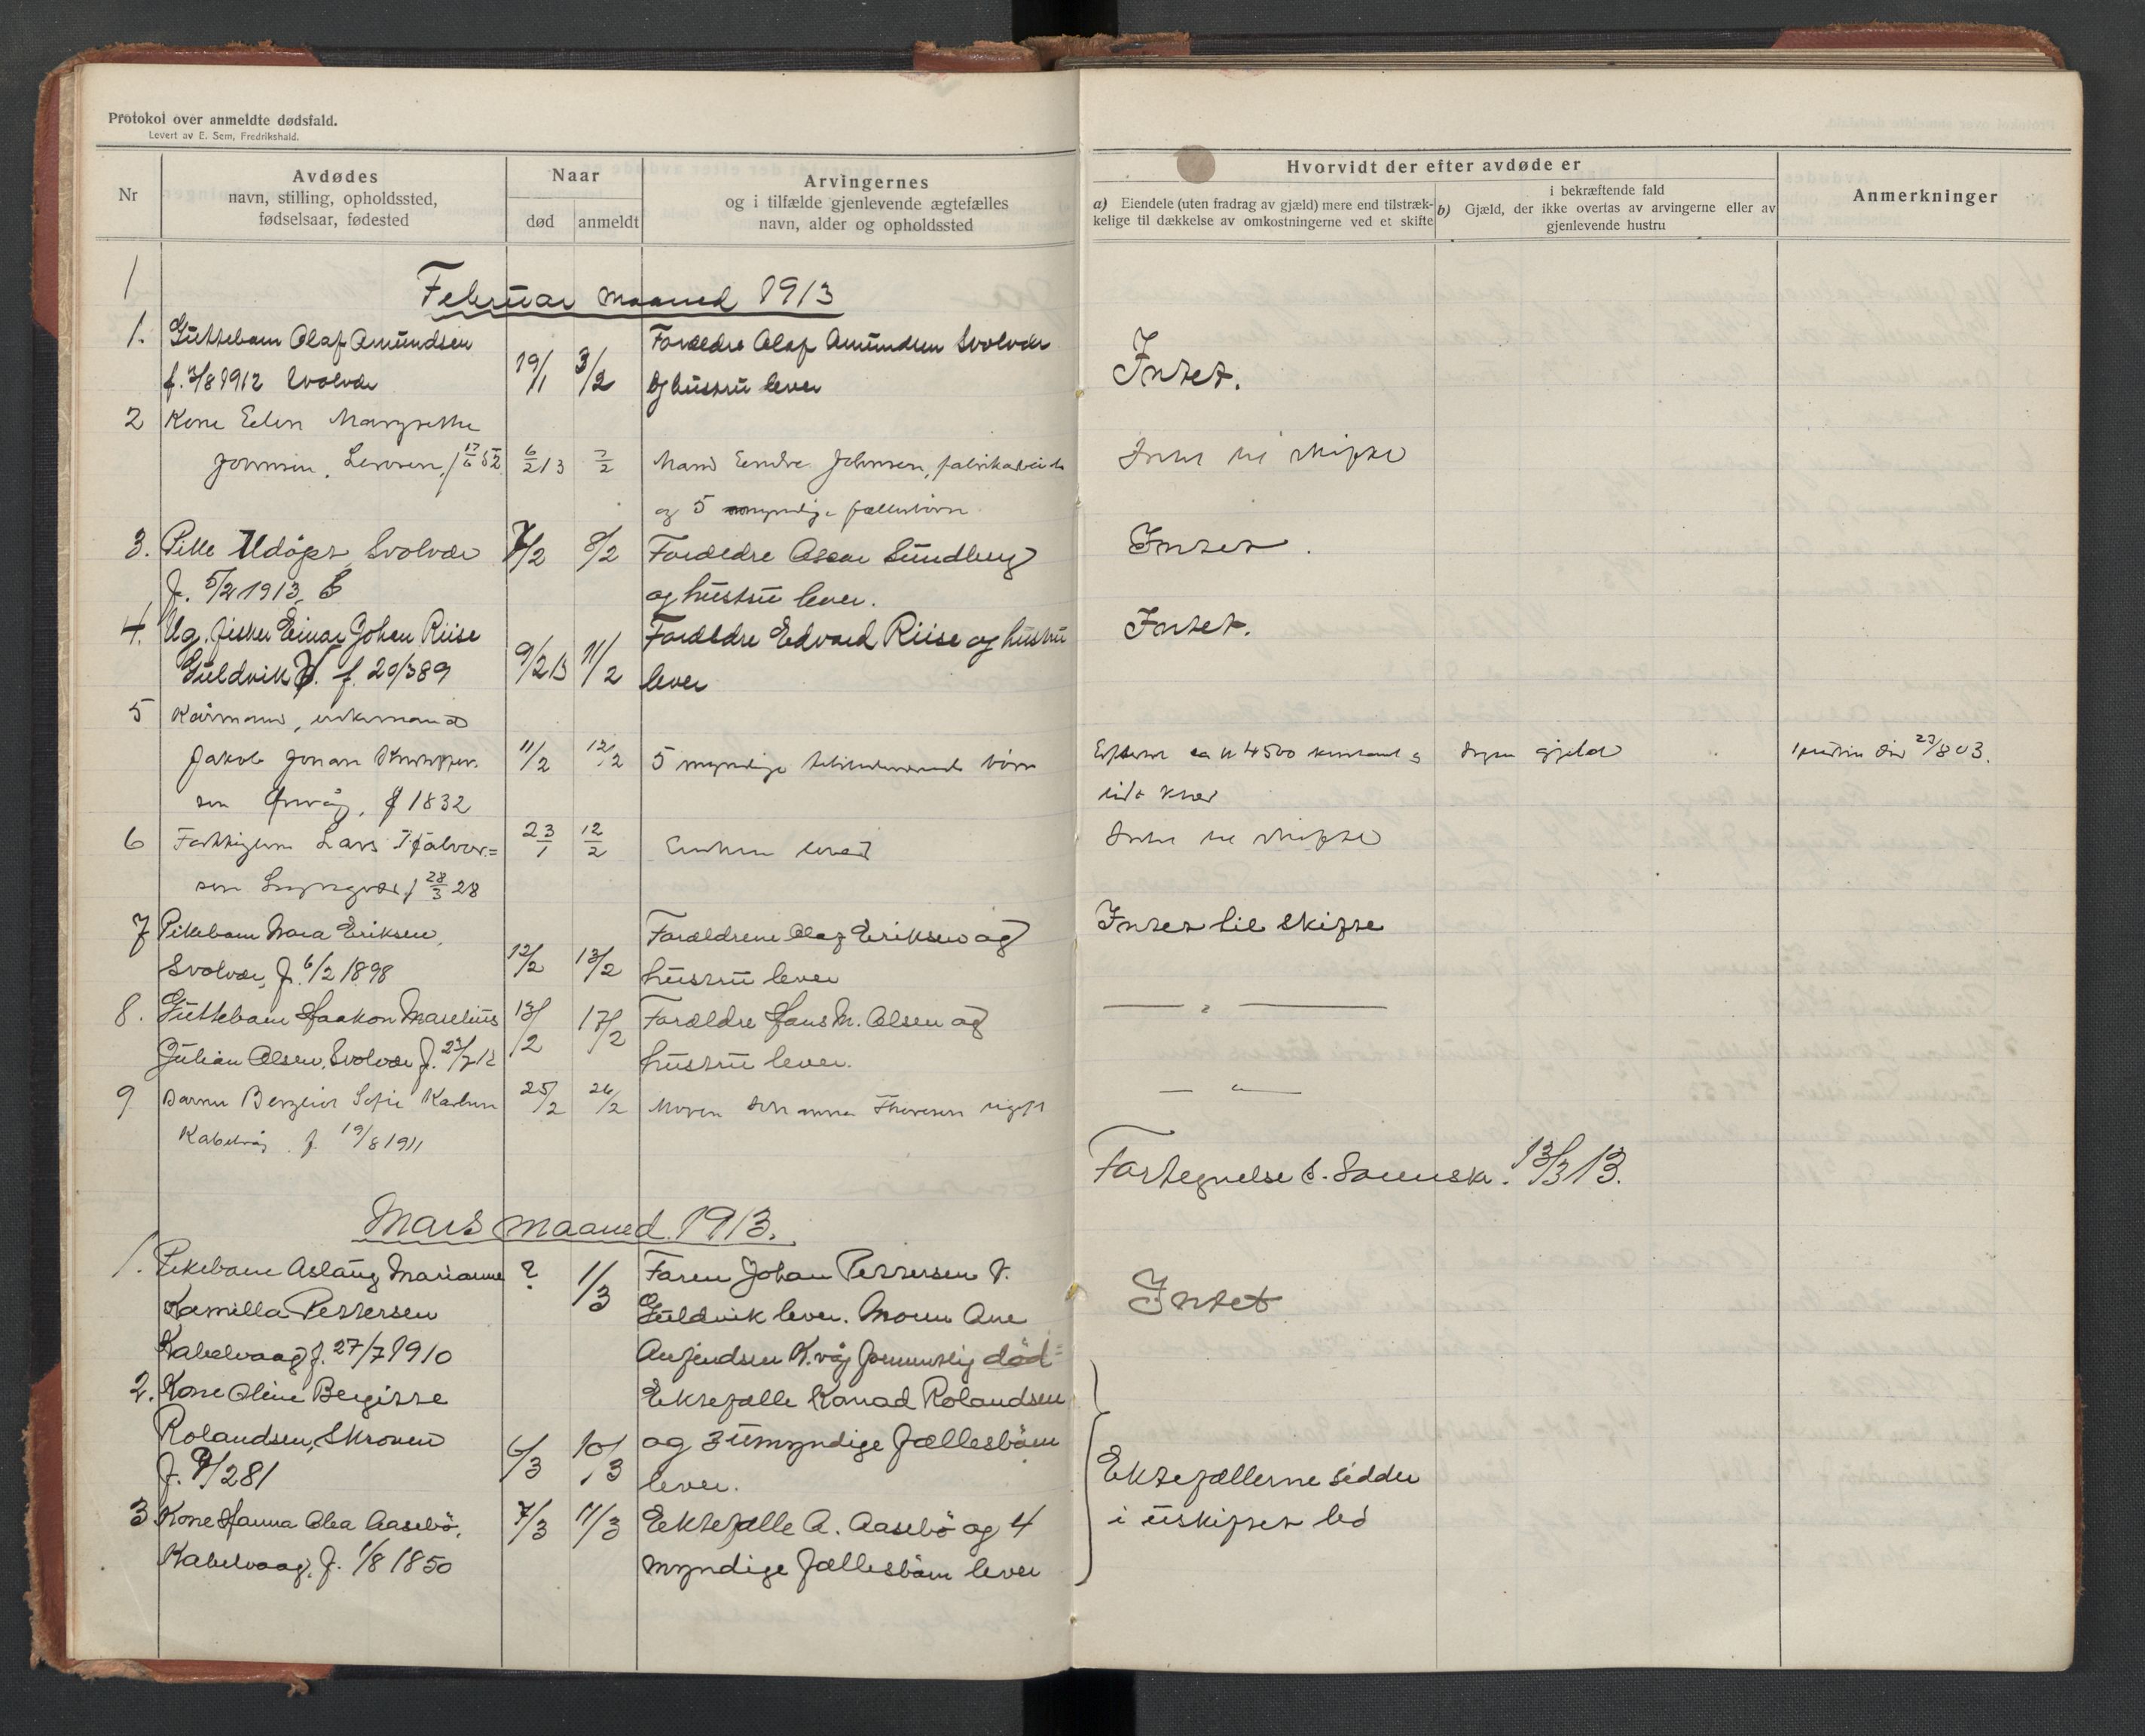 Protokol over anmeldte dødsfald.
Levert av E. Sem, Fredrikshald.
Nr
Avdødes
navn, stilling, opholdssted,
fødselsaar, fødested
Naar
død
anmeldt
Arvingernes
og i tilfælde gjenlevende ægtefælles
navn, alder og opholdssted
Hvorvidt der efter avdøde er
a) Eiendele (uten fradrag av gjæld) mere end tilstræk-
kelige til dækkelse av omkostningerne ved et skifte
i bekræftende fald
b) Gjæld, der ikke overtas av arvingerne eller av
gjenlevende hustru
Anmerkninger
1
Februar maaned 1913
1. Guttebarn Olaf Amundsen
f. 2/8 1912 Svolvær
19/1 3/2
Forældre Olaf Amundsen Svolvær
og hustru lever
Intet.
2 Kone Elen Margrethe
6/2 13 7/2
Mand Johnsen, fabrikarbeider
og 5 myndige fællesbørn
Intet til skifte
3. Pike Udøpt Svolvær
f. 5/2 1913
7/2 8/2
Forældre Oscar Sundberg
og hustru lever.
Intet.
4. Ug. fisker Einar Johan Riise
Guldvik f. 20/3 89
9/2 13 11/2
Forældre Edvard Riise og hustru
lever
Intet.
5 Kaarmand, enkemand
Jakob Jonan
f 1832
11/2 12/2
5 myndige børn
ca kr 4500 kontant og
Ingen gjæld
23/8 03.
6 Fattiglem Lars Hjalvor=
sen f 28/3 28
23/1 12/2
Enken lever
Intet til skifte
7 Pikebarn Nora Eriksen,
Svolvær, f. 6/2 1898
12/2 13/2
Forældrene Olaf Eriksen og
hustru lever
Intet til skifte
8. Guttebarn Haakon Marelius
Julian Olsen, Svolvær f. 23/7 12
13/2 17/2
Forældre Hans M. Olsen og
hustru lever.
— " —
9 Barnet Bergliot Sofie Karlsen
Kabelvåg. f. 19/8 1911
25/2 26/2
Moren Thoresen ugift
— " —
Fortegnelse t. Sorensk. 13/3 13.
Mars maaned 1913.
1. Pikebarn Aslaug Marianne
Kamilla Pettersen
Kabelvaag f. 27/7 1910
? 1/3
Faren Johan Pettersen
Guldvik lever. Moren Ane
Anfindsen K.våg død
Intet
2. Kone Oline Bergitte
Rolandsen, Skroven
f. 9/2 81
6/3 10/3
Ektefælle Konrad Rolandsen
og 3 umyndige fællesbørn
lever.
3 Kone Hanna Olea Aasebø,
Kabelvaag, f. 1/8 1850
7/3 11/3
Ektefælle A. Aasebø og 4
myndige fællesbørn lever
Ektefællerne sidder
i uskiftet bo